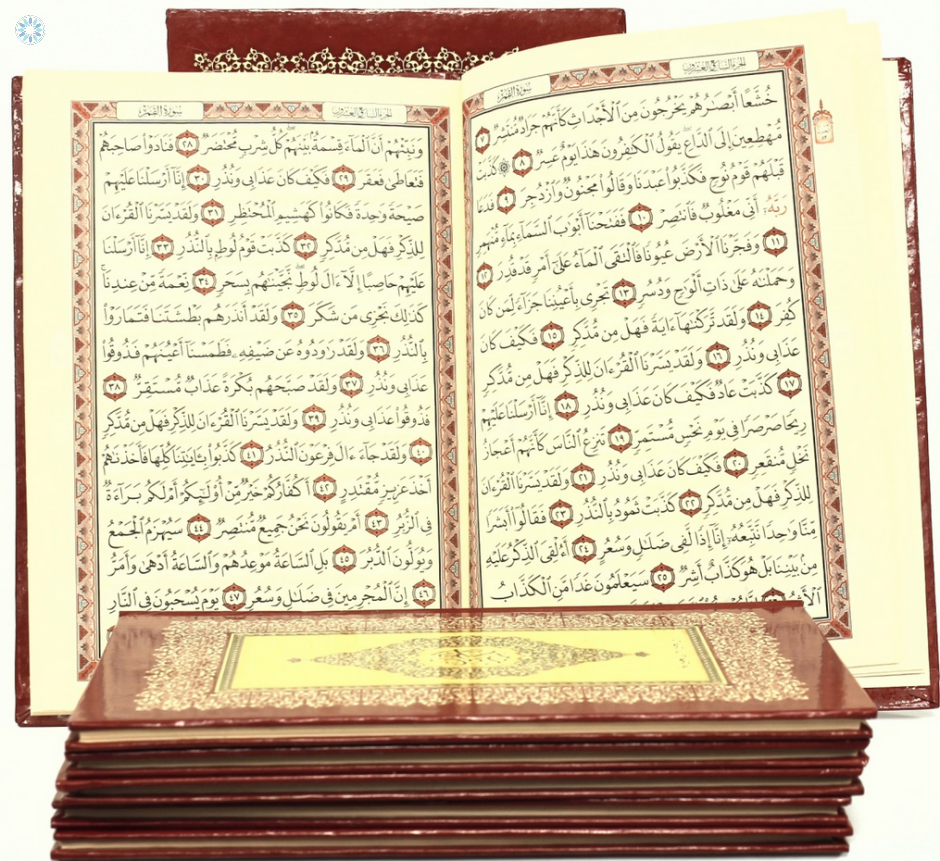 الجزء السابع والعشرون
سورة القمر
خُشَّعًا أَبْصَـٰرُهُمْ يَخْرُجُونَ مِنَ ٱلْأَجْدَاثِ كَأَنَّهُمْ جَرَادٌ مُّنتَشِرٌ ٧
مُّهْطِعِينَ إِلَى ٱلدَّاعِ يَقُولُ ٱلْكَـٰفِرُونَ هَـٰذَا يَوْمٌ عَسِرٌ ٨ ۞ كَذَّبَتْ
قَبْلَهُمْ قَوْمُ نُوحٍ فَكَذَّبُوا۟ عَبْدَنَا وَقَالُوا۟ مَجْنُونٌ وَٱزْدُجِرَ ٩ فَدَعَا
رَبَّهُۥٓ أَنِّى مَغْلُوبٌ فَٱنتَصِرْ ١٠ فَفَتَحْنَآ أَبْوَٰبَ ٱلسَّمَآءِ بِمَآءٍ مُّنْهَمِرٍ
١١ وَفَجَّرْنَا ٱلْأَرْضَ عُيُونًا فَٱلْتَقَى ٱلْمَآءُ عَلَىٰٓ أَمْرٍ قَدْ قُدِرَ ١٢
وَحَمَلْنَـٰهُ عَلَىٰ ذَاتِ أَلْوَٰحٍ وَدُسُرٍ ١٣ تَجْرِى بِأَعْيُنِنَا جَزَآءً لِّمَن كَانَ
كُفِرَ ١٤ وَلَقَد تَّرَكْنَـٰهَآ ءَايَةً فَهَلْ مِن مُّدَّكِرٍ ١٥ فَكَيْفَ كَانَ
عَذَابِى وَنُذُرِ ١٦ وَلَقَدْ يَسَّرْنَا ٱلْقُرْءَانَ لِلذِّكْرِ فَهَلْ مِن مُّدَّكِرٍ
١٧ كَذَّبَتْ عَادٌ فَكَيْفَ كَانَ عَذَابِى وَنُذُرِ ١٨ إِنَّآ أَرْسَلْنَا عَلَيْهِمْ
رِيحًا صَرْصَرًا فِى يَوْمِ نَحْسٍ مُّسْتَمِرٍّ ١٩ تَنزِعُ ٱلنَّاسَ كَأَنَّهُمْ أَعْجَازُ
نَخْلٍ مُّنقَعِرٍ ٢٠ فَكَيْفَ كَانَ عَذَابِى وَنُذُرِ ٢١ وَلَقَدْ يَسَّرْنَا ٱلْقُرْءَانَ
لِلذِّكْرِ فَهَلْ مِن مُّدَّكِرٍ ٢٢ كَذَّبَتْ ثَمُودُ بِٱلنُّذُرِ ٢٣ فَقَالُوٓا۟ أَبَشَرًا
مِّنَّا وَٰحِدًا نَّتَّبِعُهُۥٓ إِنَّآ إِذًا لَّفِى ضَلَـٰلٍ وَسُعُرٍ ٢٤ أَءُلْقِىَ ٱلذِّكْرُ عَلَيْهِ
مِنۢ بَيْنِنَا بَلْ هُوَ كَذَّابٌ أَشِرٌ ٢٥ سَيَعْلَمُونَ غَدًا مَّنِ ٱلْكَذَّابُ
الجزء السابع والعشرون
سورة القمر
وَنَبِّئْهُمْ أَنَّ ٱلْمَآءَ قِسْمَةٌۢ بَيْنَهُمْ كُلُّ شِرْبٍ مُّحْتَضَرٌ ٢٨ فَنَادَوْا۟ صَاحِبَهُمْ
فَتَعَاطَىٰ فَعَقَرَ ٢٩ فَكَيْفَ كَانَ عَذَابِى وَنُذُرِ ٣٠ إِنَّآ أَرْسَلْنَا عَلَيْهِمْ
صَيْحَةً وَٰحِدَةً فَكَانُوا۟ كَهَشِيمِ ٱلْمُحْتَظِرِ ٣١ وَلَقَدْ يَسَّرْنَا ٱلْقُرْءَانَ
لِلذِّكْرِ فَهَلْ مِن مُّدَّكِرٍ ٣٢ كَذَّبَتْ قَوْمُ لُوطٍۭ بِٱلنُّذُرِ ٣٣ إِنَّآ أَرْسَلْنَا
عَلَيْهِمْ حَاصِبًا إِلَّآ ءَالَ لُوطٍ نَّجَّيْنَـٰهُم بِسَحَرٍ ٣٤ نِّعْمَةً مِّنْ عِندِنَا
كَذَٰلِكَ نَجْزِى مَن شَكَرَ ٣٥ وَلَقَدْ أَنذَرَهُم بَطْشَتَنَا فَتَمَارَوْا۟
بِٱلنُّذُرِ ٣٦ وَلَقَدْ رَٰوَدُوهُ عَن ضَيْفِهِۦ فَطَمَسْنَآ أَعْيُنَهُمْ فَذُوقُوا۟
عَذَابِى وَنُذُرِ ٣٧ وَلَقَدْ صَبَّحَهُم بُكْرَةً عَذَابٌ مُّسْتَقِرٌّ ٣٨
فَذُوقُوا۟ عَذَابِى وَنُذُرِ ٣٩ وَلَقَدْ يَسَّرْنَا ٱلْقُرْءَانَ لِلذِّكْرِ فَهَلْ مِن مُّدَّكِرٍ
٤٠ وَلَقَدْ جَآءَ ءَالَ فِرْعَوْنَ ٱلنُّذُرُ ٤١ كَذَّبُوا۟ بِـَٔايَـٰتِنَا كُلِّهَا فَأَخَذْنَـٰهُمْ
أَخْذَ عَزِيزٍ مُّقْتَدِرٍ ٤٢ أَكُفَّارُكُمْ خَيْرٌ مِّنْ أُو۟لَـٰٓئِكُمْ أَمْ لَكُم بَرَآءَةٌ
فِى ٱلزُّبُرِ ٤٣ أَمْ يَقُولُونَ نَحْنُ جَمِيعٌ مُّنتَصِرٌ ٤٤ سَيُهْزَمُ ٱلْجَمْعُ
وَيُوَلُّونَ ٱلدُّبُرَ ٤٥ بَلِ ٱلسَّاعَةُ مَوْعِدُهُمْ وَٱلسَّاعَةُ أَدْهَىٰ وَأَمَرُّ
٤٦ إِنَّ ٱلْمُجْرِمِينَ فِى ضَلَـٰلٍ وَسُعُرٍ ٤٧ يَوْمَ يُسْحَبُونَ فِى ٱلنَّارِ